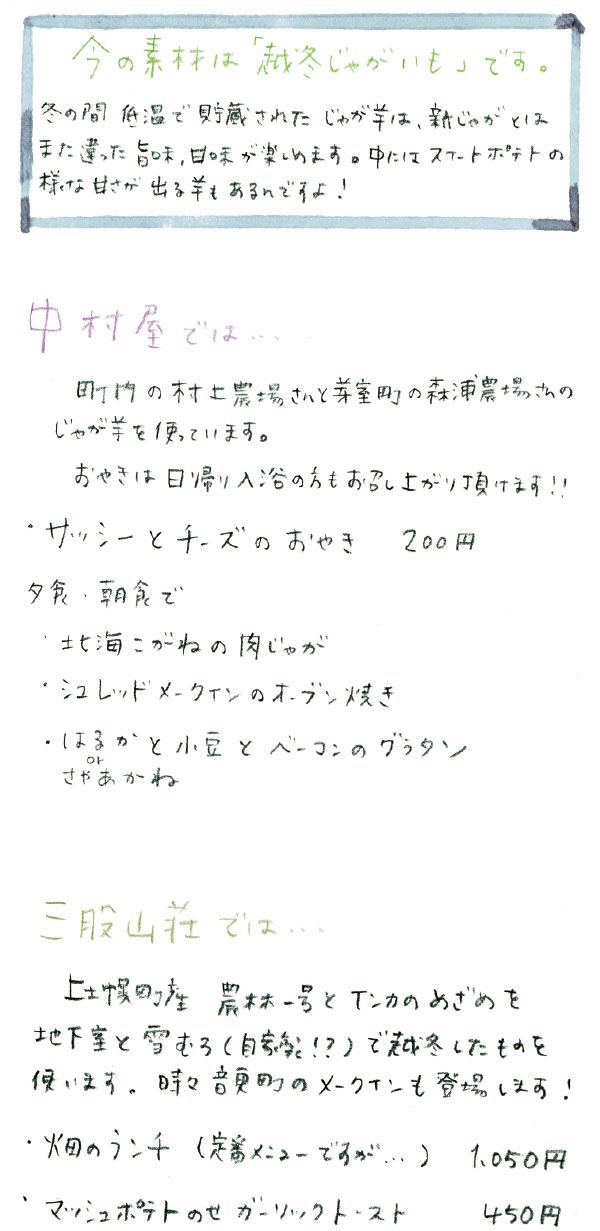 今の素材は「越冬じゃがいも」です。
冬の間 低温で貯蔵された じゃが芋は、新じゃがとは
また違った旨味、甘味が楽しめます。中にはスイートポテトの
様な甘さが出る芋もあるんですよ！
中村屋では…
町内の村上農場さんと芽室町の森浦農場さんの
じゃが芋を使っています。
おやきは日帰り入浴の方もお召し上がり頂けます!!
・サッシーとチーズのおやき 200円
夕食・朝食で
・北海こがねの肉じゃが
・シュレッドメークインのオーブン焼き
・はるかと小豆とベーコンのグラタン
or
さやあかね
三股山荘では…
上士幌町産 農林一号とインカのめざめを
地下室と雪むろ(自家製!?)で越冬したものを
使います。時々音更町のメークインも登場します!
・畑のランチ (定番メニューですが…) 1,050円
・マッシュポテトのせガーリックトースト 450円